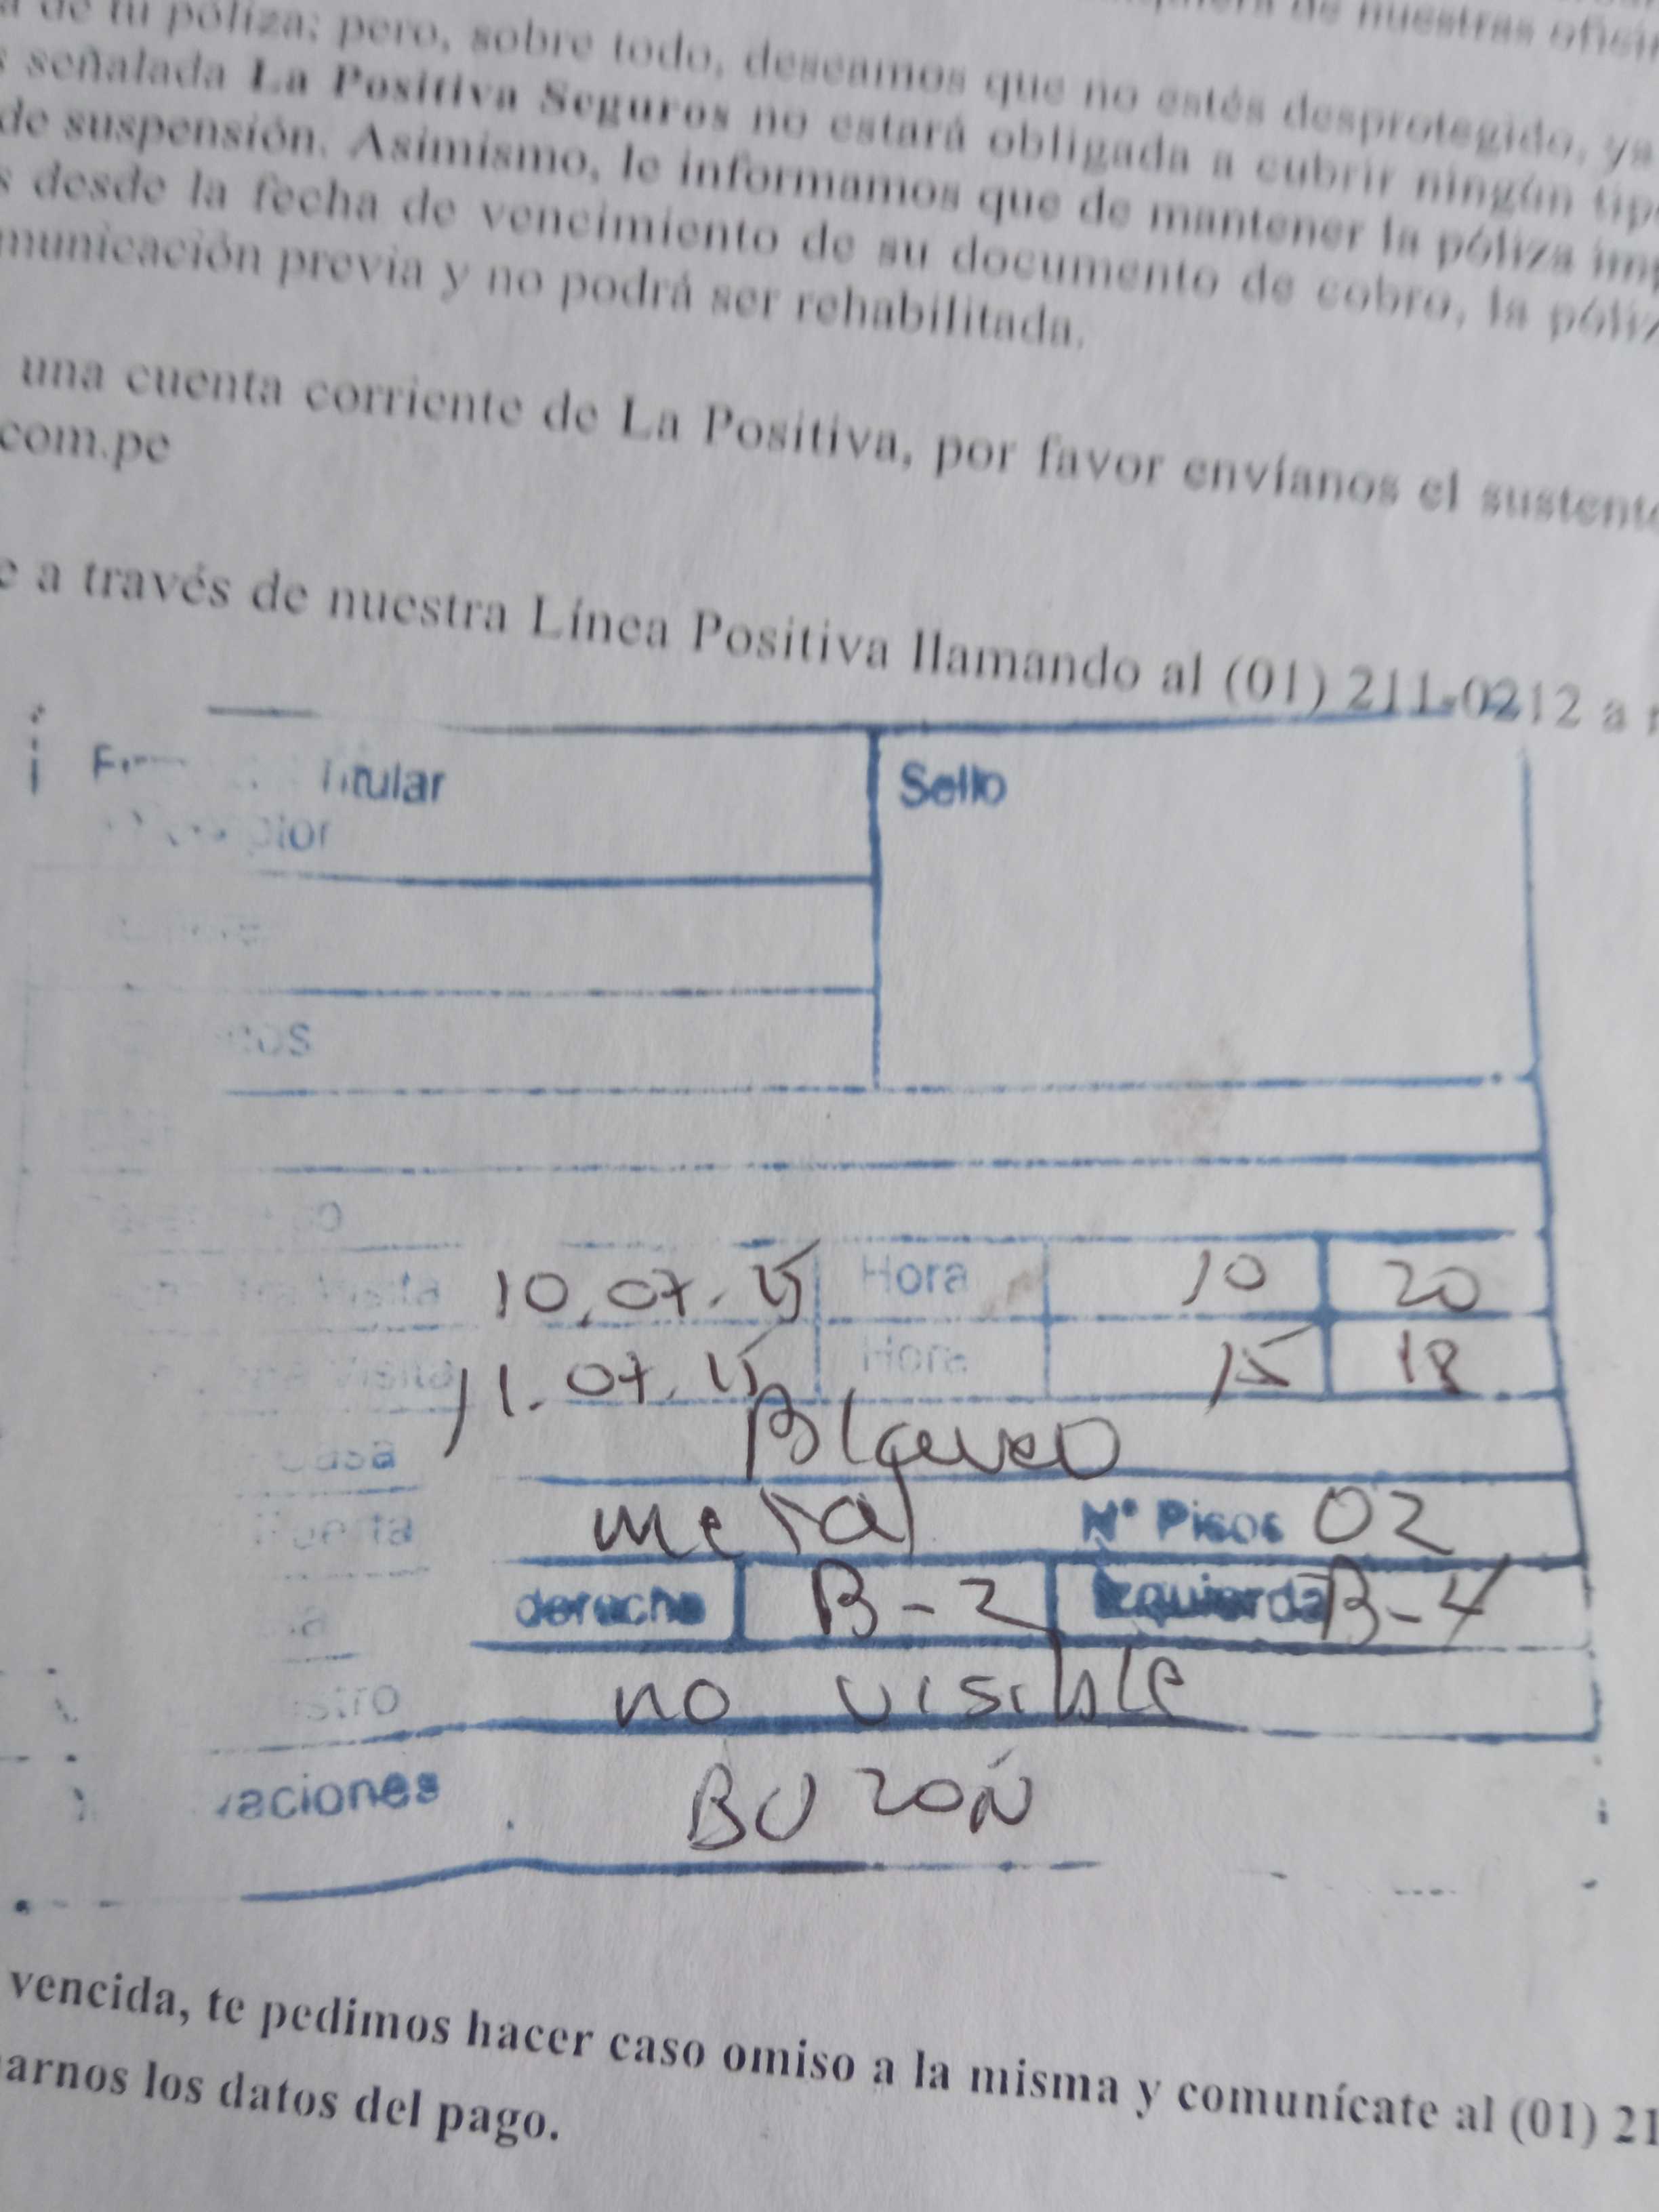 de tu póliza; pero, sobre todo, deseamos que no estés desprotegido, ya
señalada La Positiva Seguros no estará obligada a cubrir ningún tip
de suspensión. Asimismo, le informamos que de mantener la póliza imp
s desde la fecha de vencimiento de su documento de cobro, la póliz
municación previa y no podrá ser rehabilitada.
una cuenta corriente de La Positiva, por favor envíanos el sustento
com.pe
e a través de nuestra Línea Positiva llamando al (01) 211-0212 a
Titular Sello
10.07.15 Hora 10 20
11.07.15 Hora 15 18
Casa Blanco
Puerta metal N° Pisos 02
derecha B-2 Izquierda B-4
stro no visible
vaciones BUZOÑ
vencida, te pedimos hacer caso omiso a la misma y comunícate al (01) 21
arnos los datos del pago.